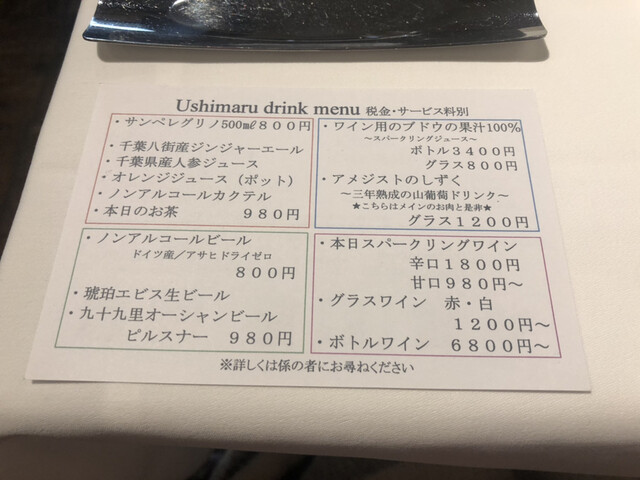 Ushimaru drink menu 税金・サービス料別
・サンペレグリノ500㎖８００円
・千葉八街産ジンジャーエール
・千葉県産人参ジュース
・オレンジジュース（ポット）
・ノンアルコールカクテル
・本日のお茶　９８０円
・ワイン用のブドウの果汁100%
～スパークリングジュース～
ボトル３４００円
グラス８００円
・アメジストのしずく
～三年熟成の山葡萄ドリンク～
★こちらはメインのお肉と是非★
グラス１２００円
・ノンアルコールビール
ドイツ産／アサヒドライゼロ
８００円
・琥珀エビス生ビール
・九十九里オーシャンビール
ピルスナー　９８０円
・本日スパークリングワイン
辛口１８００円
甘口９８０円～
・グラスワイン　赤・白
１２００円～
・ボトルワイン　６８００円～
※詳しくは係の者にお尋ねください